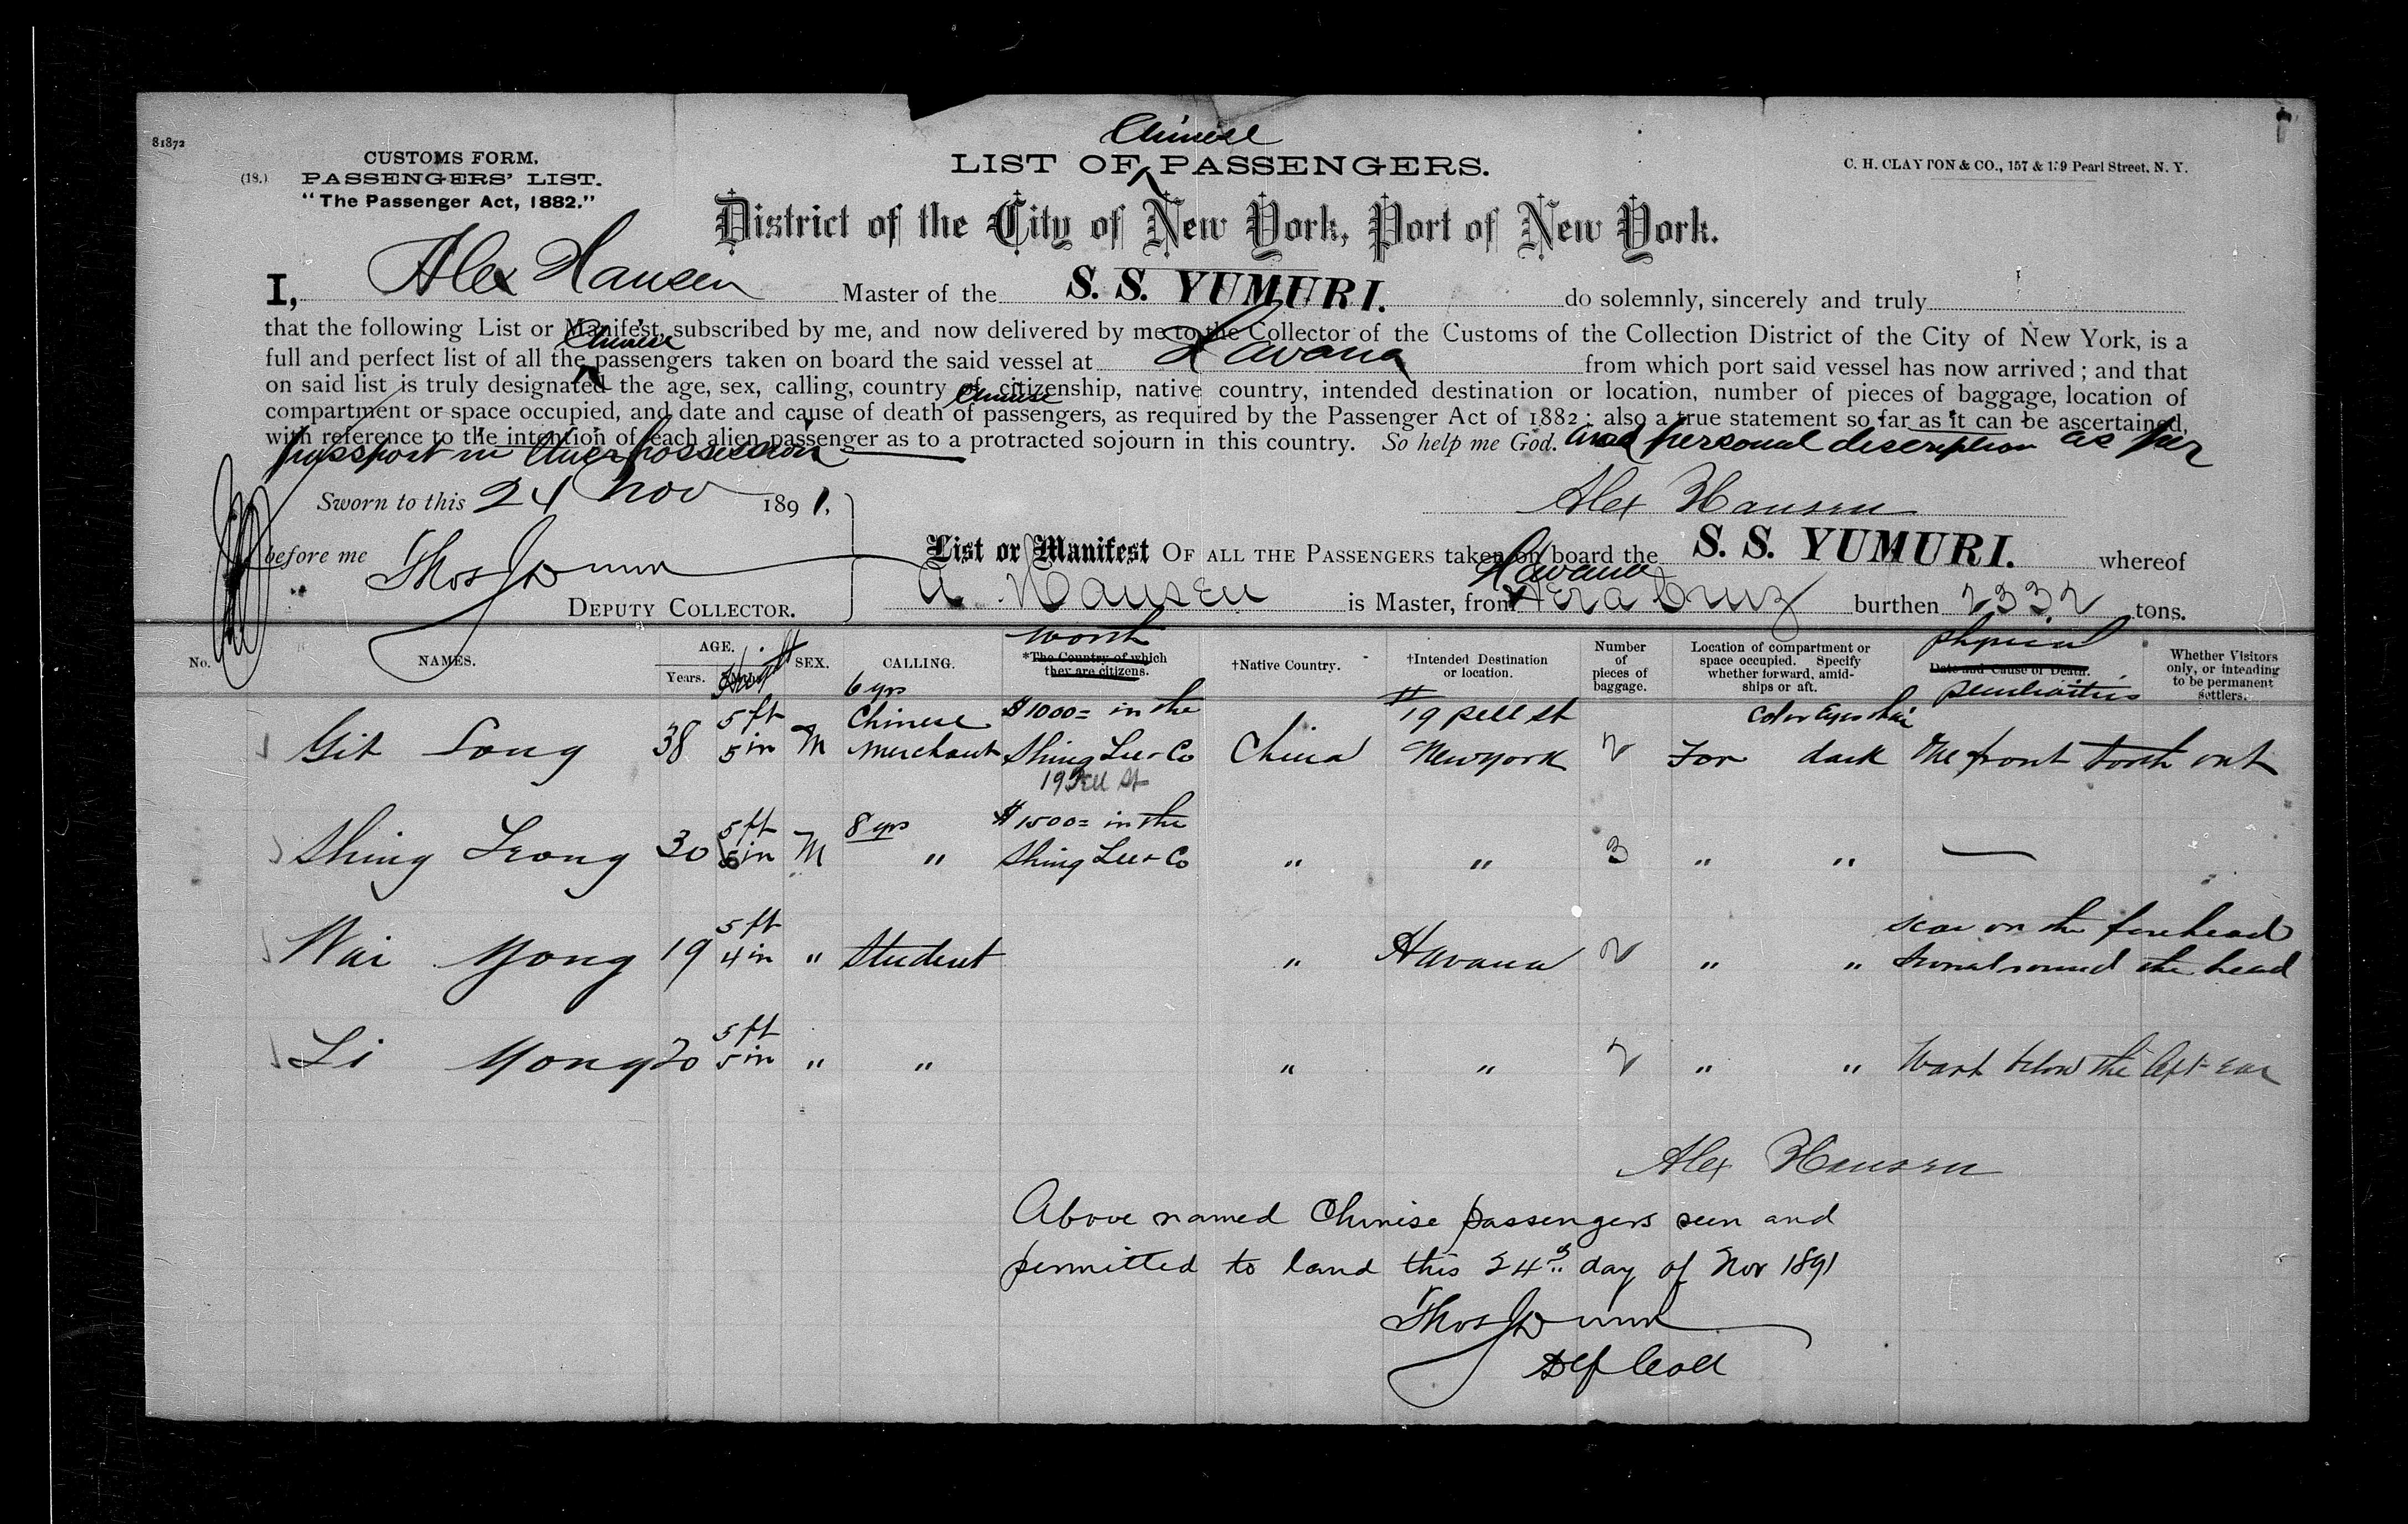 81872
(18.)
CUSTOMS FORM.
PASSENGERS' LIST.
"The Passenger Act, 1882."
Chinese
LIST OF PASSENGERS.
C. H. CLAYTON & CO., 157 & 159 Pearl Street, N. Y.
District of the City of New York, Port of New York.
I, Alex Hansen Master of the S. S. YUMURI. do solemnly, sincerely and truly
that the following List or Manifest, subscribed by me, and now delivered by me to the Collector of the Customs of the Collection District of the City of New York, is a
Chinese
full and perfect list of all the passengers taken on board the said vessel at Havana from which port said vessel has now arrived; and that
on said list is truly designated the age, sex, calling, country of citizenship, native country, intended destination or location, number of pieces of baggage, location of
Chinese
compartment or space occupied, and date and cause of death of passengers, as required by the Passenger Act of 1882; also a true statement so far as it can be ascertained,
with reference to the intention of each alien passenger as to a protracted sojourn in this country. So help me God. and personal description as per
passport in their possession
Sworn to this 24 Nov 1891.
Alex Hansen
before me Thos J Dunn
DEPUTY COLLECTOR.
List or Manifest OF ALL THE PASSENGERS taken on board the S. S. YUMURI. whereof
Havana
A. Hansen is Master, from Vera Cruz burthen 2332 tons.
No. NAMES. AGE. Years. Height SEX. CALLING. worth *The Country of which they are citizens. †Native Country. †Intended Destination or location. Number of pieces of baggage. Location of compartment or space occupied. Specify whether forward, amidships or aft. physical Date and Cause of Death. peculiarities Whether Visitors only, or intending to be permanent settlers.
6 yrs
5 ft Chinese $1000= in the # 19 Pell St Color Eyes & hair
Git Long 38 5 in M Merchant Shing Lee & Co China New York 2 For dark One front tooth out
19 Pell St
5 ft 8 yrs $1500= in the
Shing Leong 30 6 in M " Shing Lee & Co " " 3 " " —
5 ft scar on the forehead
Wai Yong 19 4 in " Student " Havana 2 " " the head
5 ft
Li Yong 20 5 in " " " " 2 " " Wart below the left ear
Alex Hansen
Above named Chinese passengers seen and
permitted to land this 24th day of Nov 1891
Thos J Dunn
Dep Coll